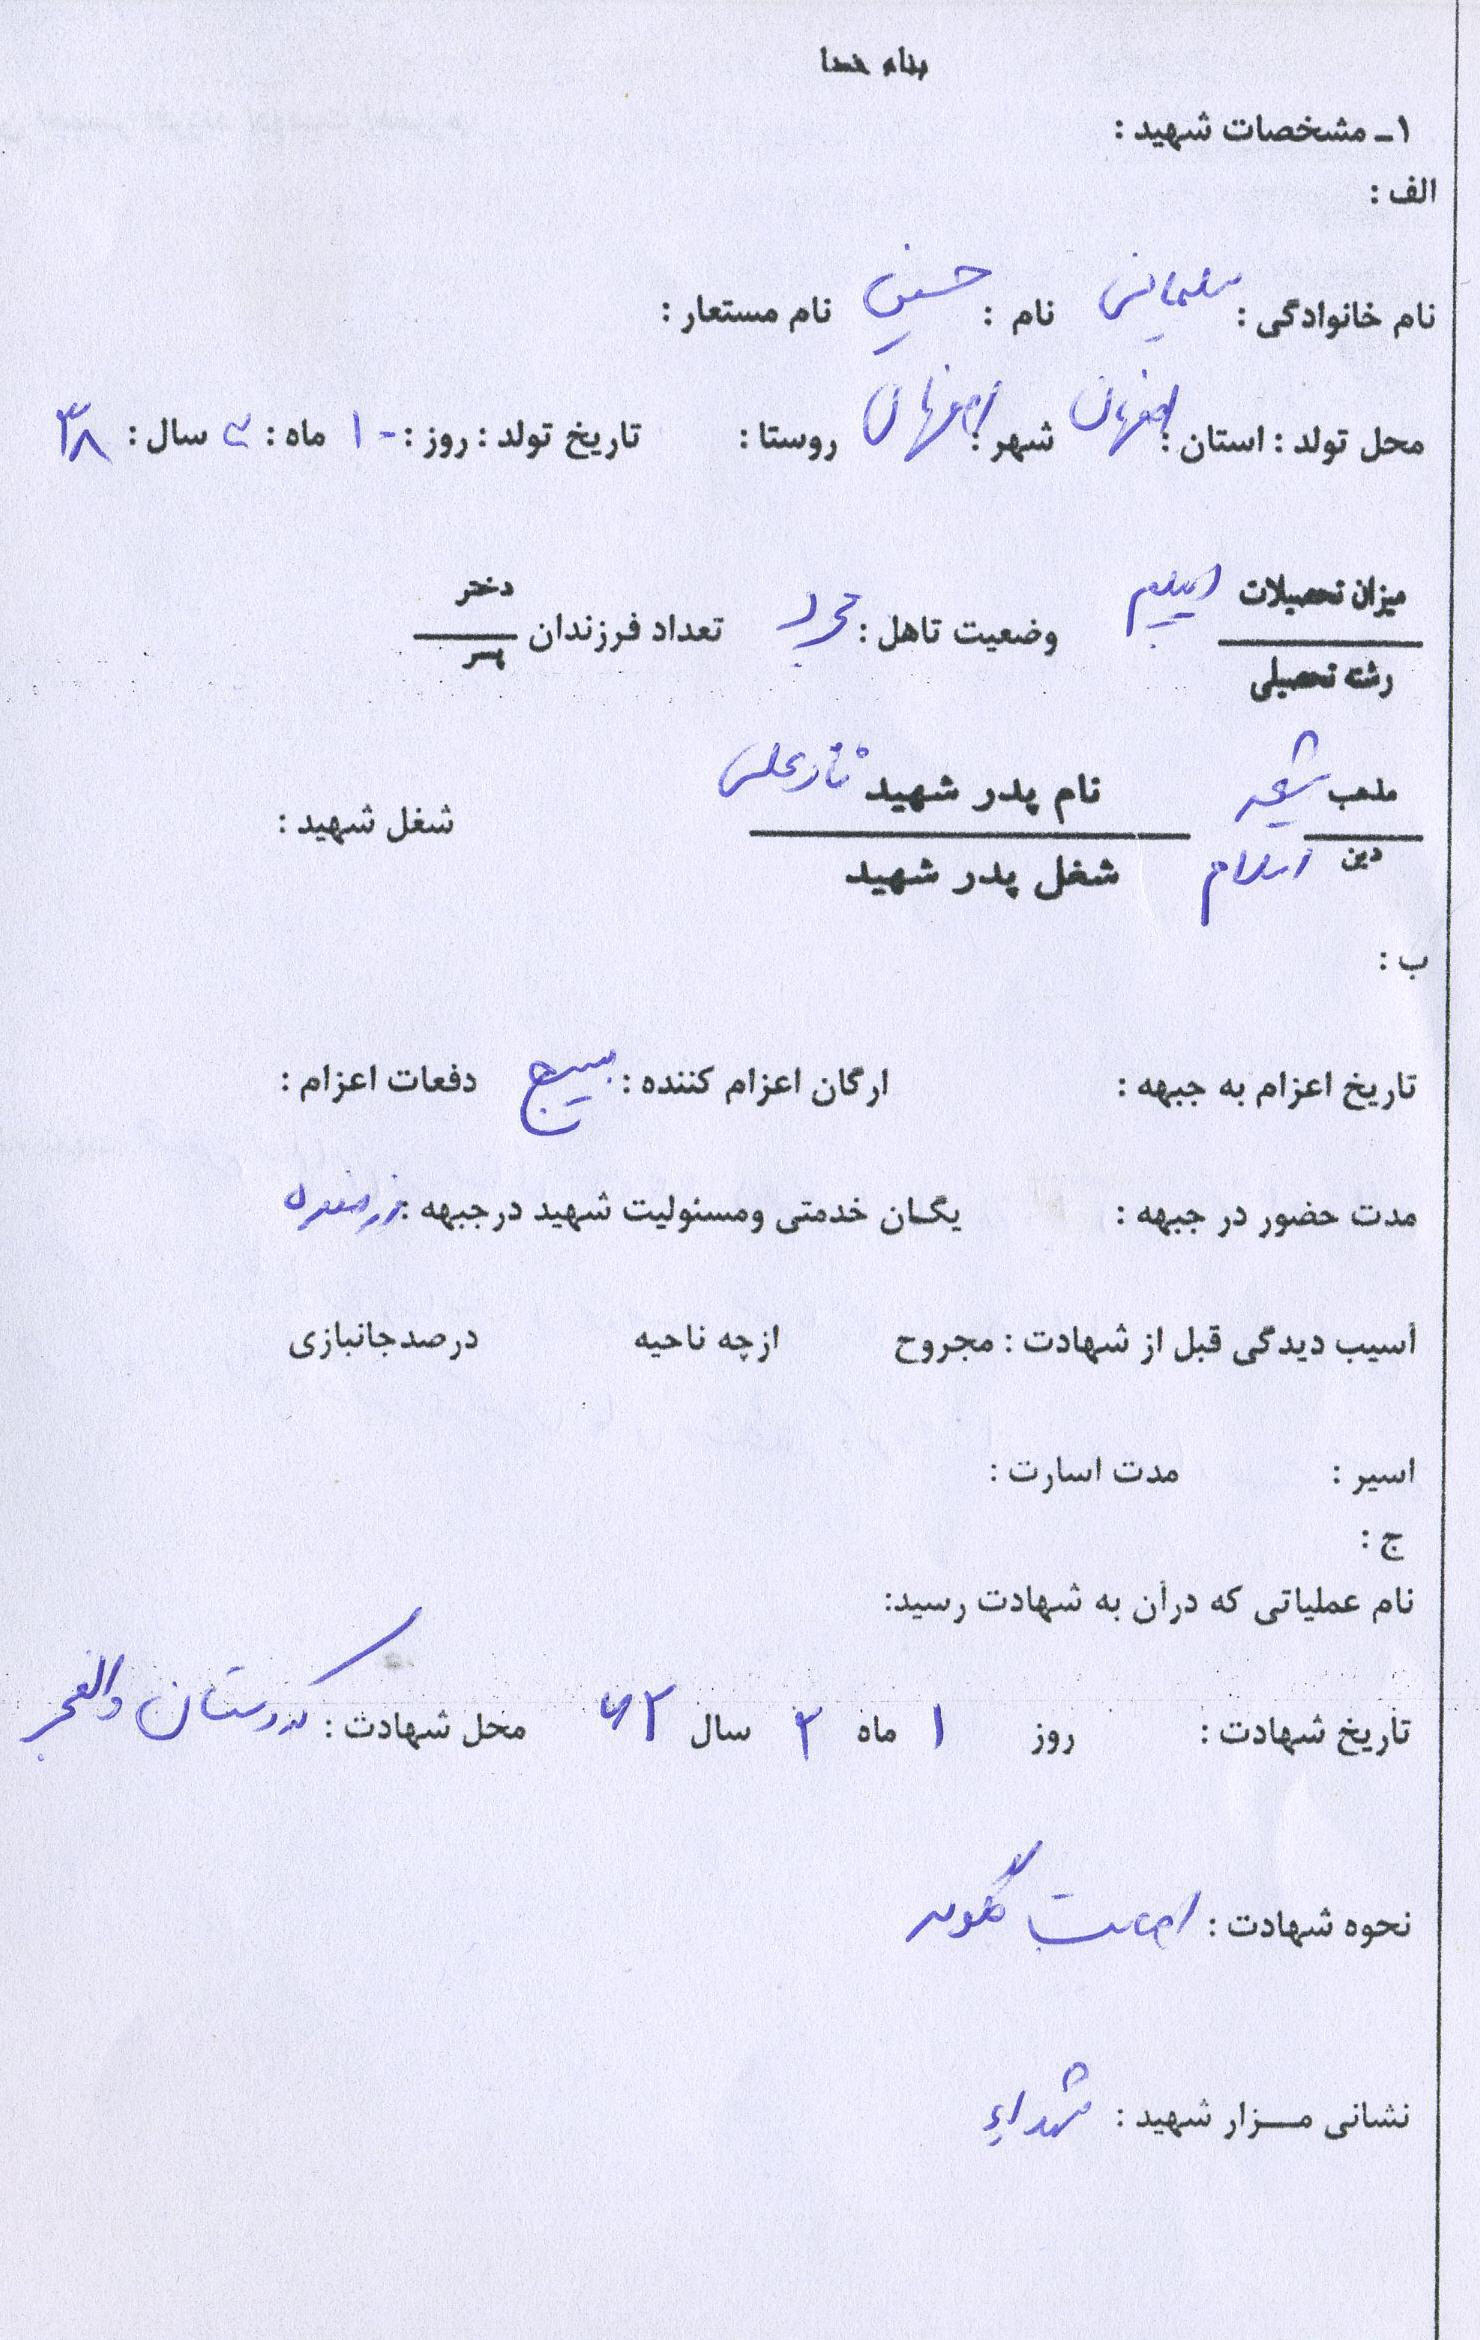 بنام خدا
۱ـ مشخصات شهید :
الف :
نام خانوادگی : سلیمانی نام : حسین نام مستعار :
محل تولد : استان : اصفهان شهر : اصفهان روستا : تاریخ تولد : روز : ۱۰ ماه : ۲ سال : ۳۸
میزان تحصیلات دیپلم وضعیت تاهل : مجرد تعداد فرزندان دختر
رشته تحصیلی پسر
مذهب شیعه نام پدر شهید شغل شهید :
دین اسلام شغل پدر شهید
ب :
تاریخ اعزام به جبهه : ارگان اعزام کننده : بسیج دفعات اعزام :
مدت حضور در جبهه : یگان خدمتی ومسئولیت شهید درجبهه : رزمنده
آسیب دیدگی قبل از شهادت : مجروح ازچه ناحیه درصدجانبازی
اسیر : مدت اسارت :
ج :
نام عملیاتی که درآن به شهادت رسید:
تاریخ شهادت : روز ۱ ماه ۲ سال ۶۲ محل شهادت : کردستان والفجر
نحوه شهادت : اصابت گلوله
نشانی مـزار شهید : شهداء